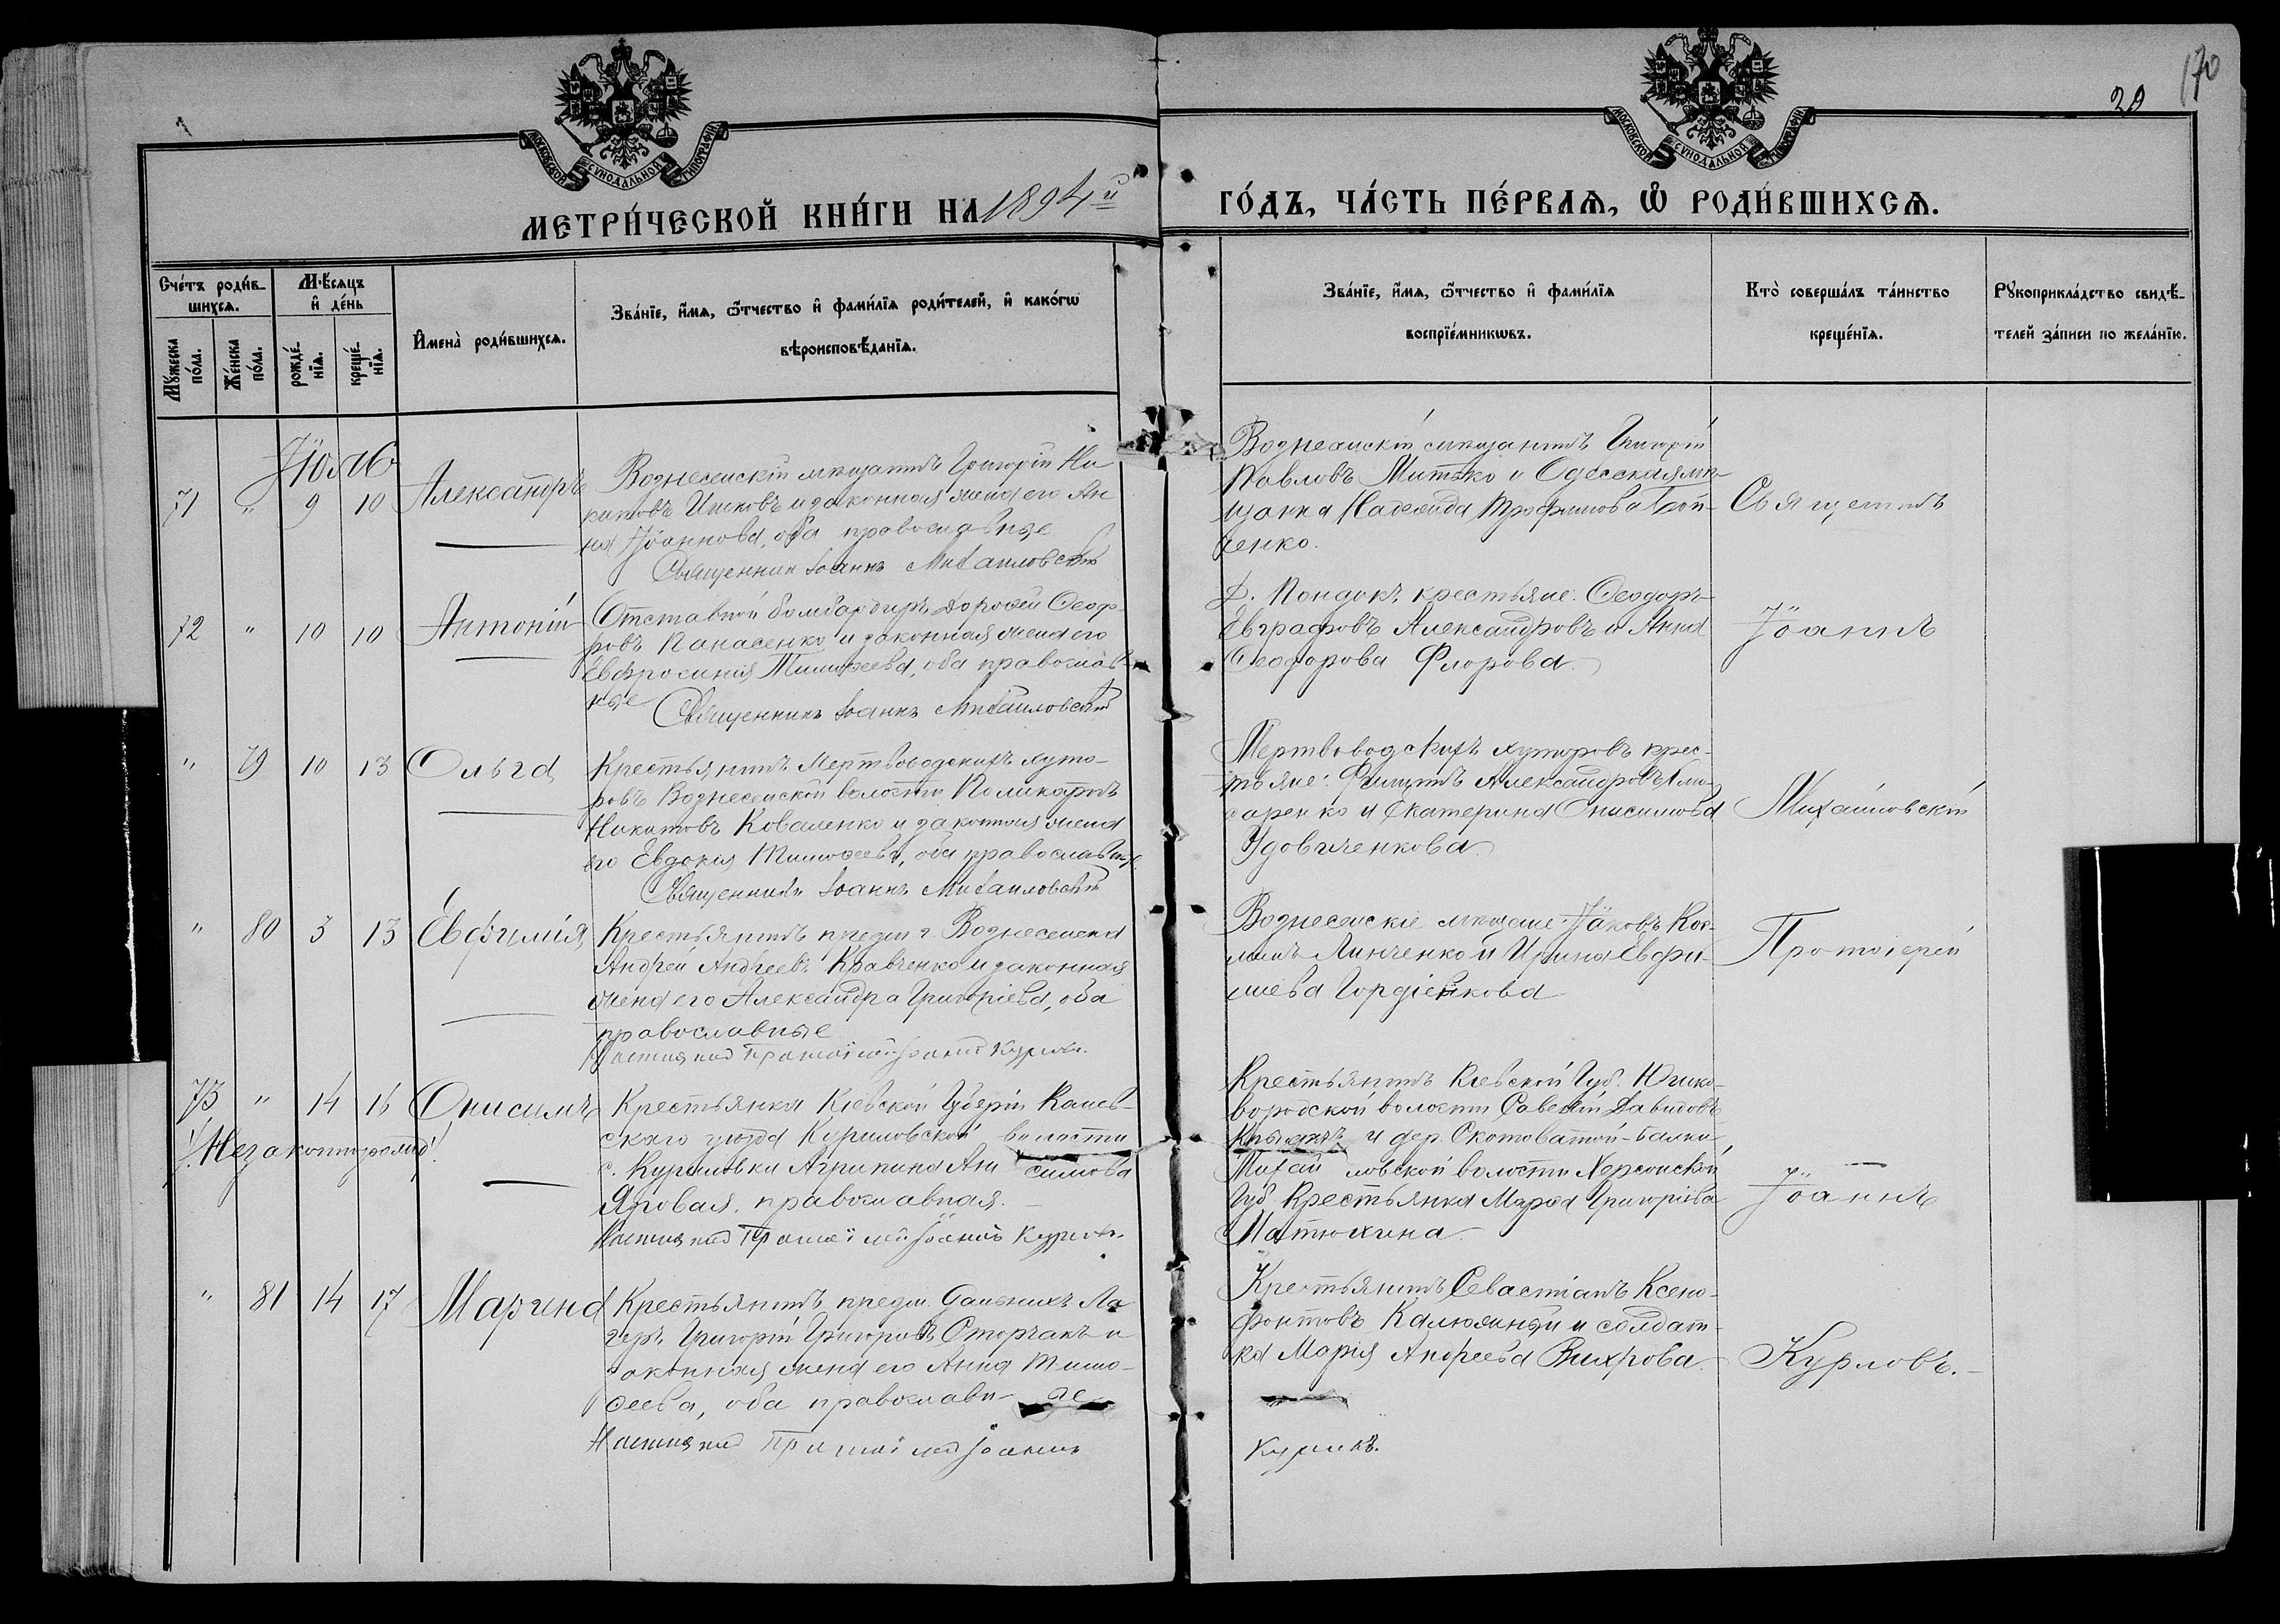 170
20
МОСКОВСКОЙ СѴНОДАЛЬНОЙ ТИПОГРАФІИ
МОСКОВСКОЙ СѴНОДАЛЬНОЙ ТИПОГРАФІИ
МЕТРИ́ЧЕСКОЙ КНИ́ГИ НА 1894й ГО́ДЪ, ЧА́СТЬ ПЕ́РВАЯ, Ѽ РОДИ́ВШИХСЯ.
Сче́тъ роди́в-
шихся.
Мѣ́сяцъ
и҆ де́нь
Мꙋжеска по́ла.
Же́нска по́ла.
рожде́-нїя.
креще́-нїя.
И҆мена̀ роди́вшихся.
Зва́нїе, и҆́мя, ѻ҆́тчество и҆ фами́лїя роди́телей, и҆ како́гѡ
вѣроисповѣ́данїя.
Зва́нїе, и҆́мя, ѻ҆́тчество и҆ фами́лїя
воспрїе́мникѡвъ.
Кто̀ соверша́лъ та́инство
креще́нїя.
Рꙋкоприкла́дство свидѣ́-
телей за́писи по жела́нїю.
Іюль
71 " 9 10 Александръ
Вознесенскій мѣщанинъ Григорій Ни-
китовъ и законная жена его Ан
на Іоаннова, оба православные
Священникъ Іоаннъ Михайловскій
Вознесенскій мѣщанинъ Григорій
Павловъ Митько и Одесская мѣ-
щанка Надежда Трофимова
ченко.
Священникъ
72 " 10 10 Антоній
Отставной бомбардиръ Дорофей Ѳеодо-
ровъ Панасенко и законная жена его
Евфросинія Тимофеева, оба православ-
ные
Священникъ Іоаннъ Михайловскій
крестьяне: Ѳеодоръ
Евграфовъ Александровъ и Анна
Ѳеодорова Флорова.
Іоаннъ
" 79 10 13 Ольга
Крестьянинъ Мертвоводскихъ хуто-
ровъ Вознесенской волости Поликарпъ
Никитовъ Коваленко и законная жена
его Евдокія Тимофеева, оба православные.
Священникъ Іоаннъ Михайловскій
Мертвоводскихъ хуторовъ крес-
тьяне: Филиппъ Александровъ
и Екатерина Онисимова
Удовиченкова
Михайловскій
" 80 3 13 Евфимія
Крестьянинъ предм. г. Вознесенска
Андрей Андреевъ Кравченко и законная
жена его Александра Григоріева, оба
православные
Іоаннъ Курловъ.
Вознесенскіе мѣщане: Іаковъ Кос-
минъ Линченко и Ирина Евфи-
міева Гордіенкова
Протоіерей
73 " 14 16 Онисимъ
Незаконнорожд.
Крестьянка Кіевской Губерніи Канев-
скаго уѣзда Куриловской волости
с. Куриловки Агрипина Анисимова
Яровая, православная.
Іоаннъ Курловъ.
Крестьянинъ Кіевской Губ.
волости Савелій Давидовъ
и дер. Скотоватой-Балки
Михайловской волости Херсонской
Губ. Крестьянка Марѳа Григоріева
Матюхина
Іоаннъ
" 81 14 17 Марина
Крестьянинъ предм. Дальнихъ Ла-
герь Григорій Григоріевъ Сторчакъ и
законная жена его Анна Тимо-
феева, оба православные
Іоаннъ
Курловъ.
Крестьянинъ Севастіанъ Ксено-
фонтовъ Калюжный и солдат-
ка Марія Андреева Вихрова.
Курловъ.